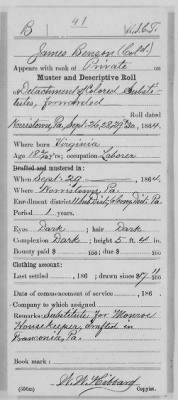 B | 41 | U.S.C.T.
James Benson (Cold.)
Appears with rank of Private on
Muster and Descriptive Roll
of Detachment of Colored Substi-
tutes, forwarded
Roll dated
Norristown, Pa., Sept. 26, 28, 29 & 30, 1864.
Where born Virginia
Age 18 y'rs; occupation Laborer
Drafted and mustered in:
When Sept. 29, 1864.
Where Norristown, Pa.
Enrollment district
Period 1 years.
Eyes Dark; hair Dark
Complexion Dark; height 5 ft. 4 in.
Bounty paid $ 100; due $ 100
Clothing account:
Last settled , 186 ; drawn since $
Date of commencement of service , 186 .
Company to which assigned
Remarks: Substitute for Monroe
Housekeeper, drafted in
Franconia, Pa.
Book mark:
W. W. Hibbard
(356a) Copyist.